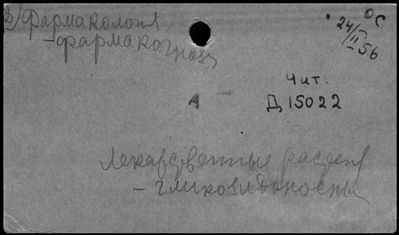 2) Фармакология
ОС
24/II 56
- фармакогнозия
Чит.
А
Д 15022
Лекарственные растения
- гликозидоносные